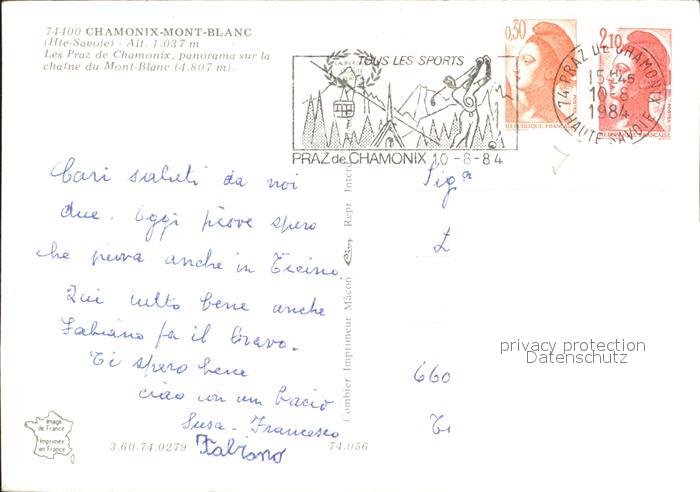 74400 CHAMONIX-MONT-BLANC
(Hte-Savoie) - Alt. 1.037 m
Les Praz de Chamonix, panorama sur la
chaîne du Mont-Blanc (4.807 m).
TOUS LES SPORTS
PRAZ de CHAMONIX 10-8-84
0,30
POSTES
REPUBLIQUE FRANÇAISE
2,10
74 PRAZ DE CHAMONIX
15H45
10-8
1984
HAUTE-SAVOIE
Cari saluti da noi
due. Oggi piove spero
che piova anche in Ticino.
Qui tutto bene anche
Fabiano fa il bravo.
Ti spero bene
ciao con un bacio
Susa - Francesco
Fabiano
Combier Imprimeur Mâcon Cim Repr. Inter
Sig.a
660
Ti
privacy protection
Datenschutz
Image
de France
Imprimée
en France
3.60.74.0279
74.056